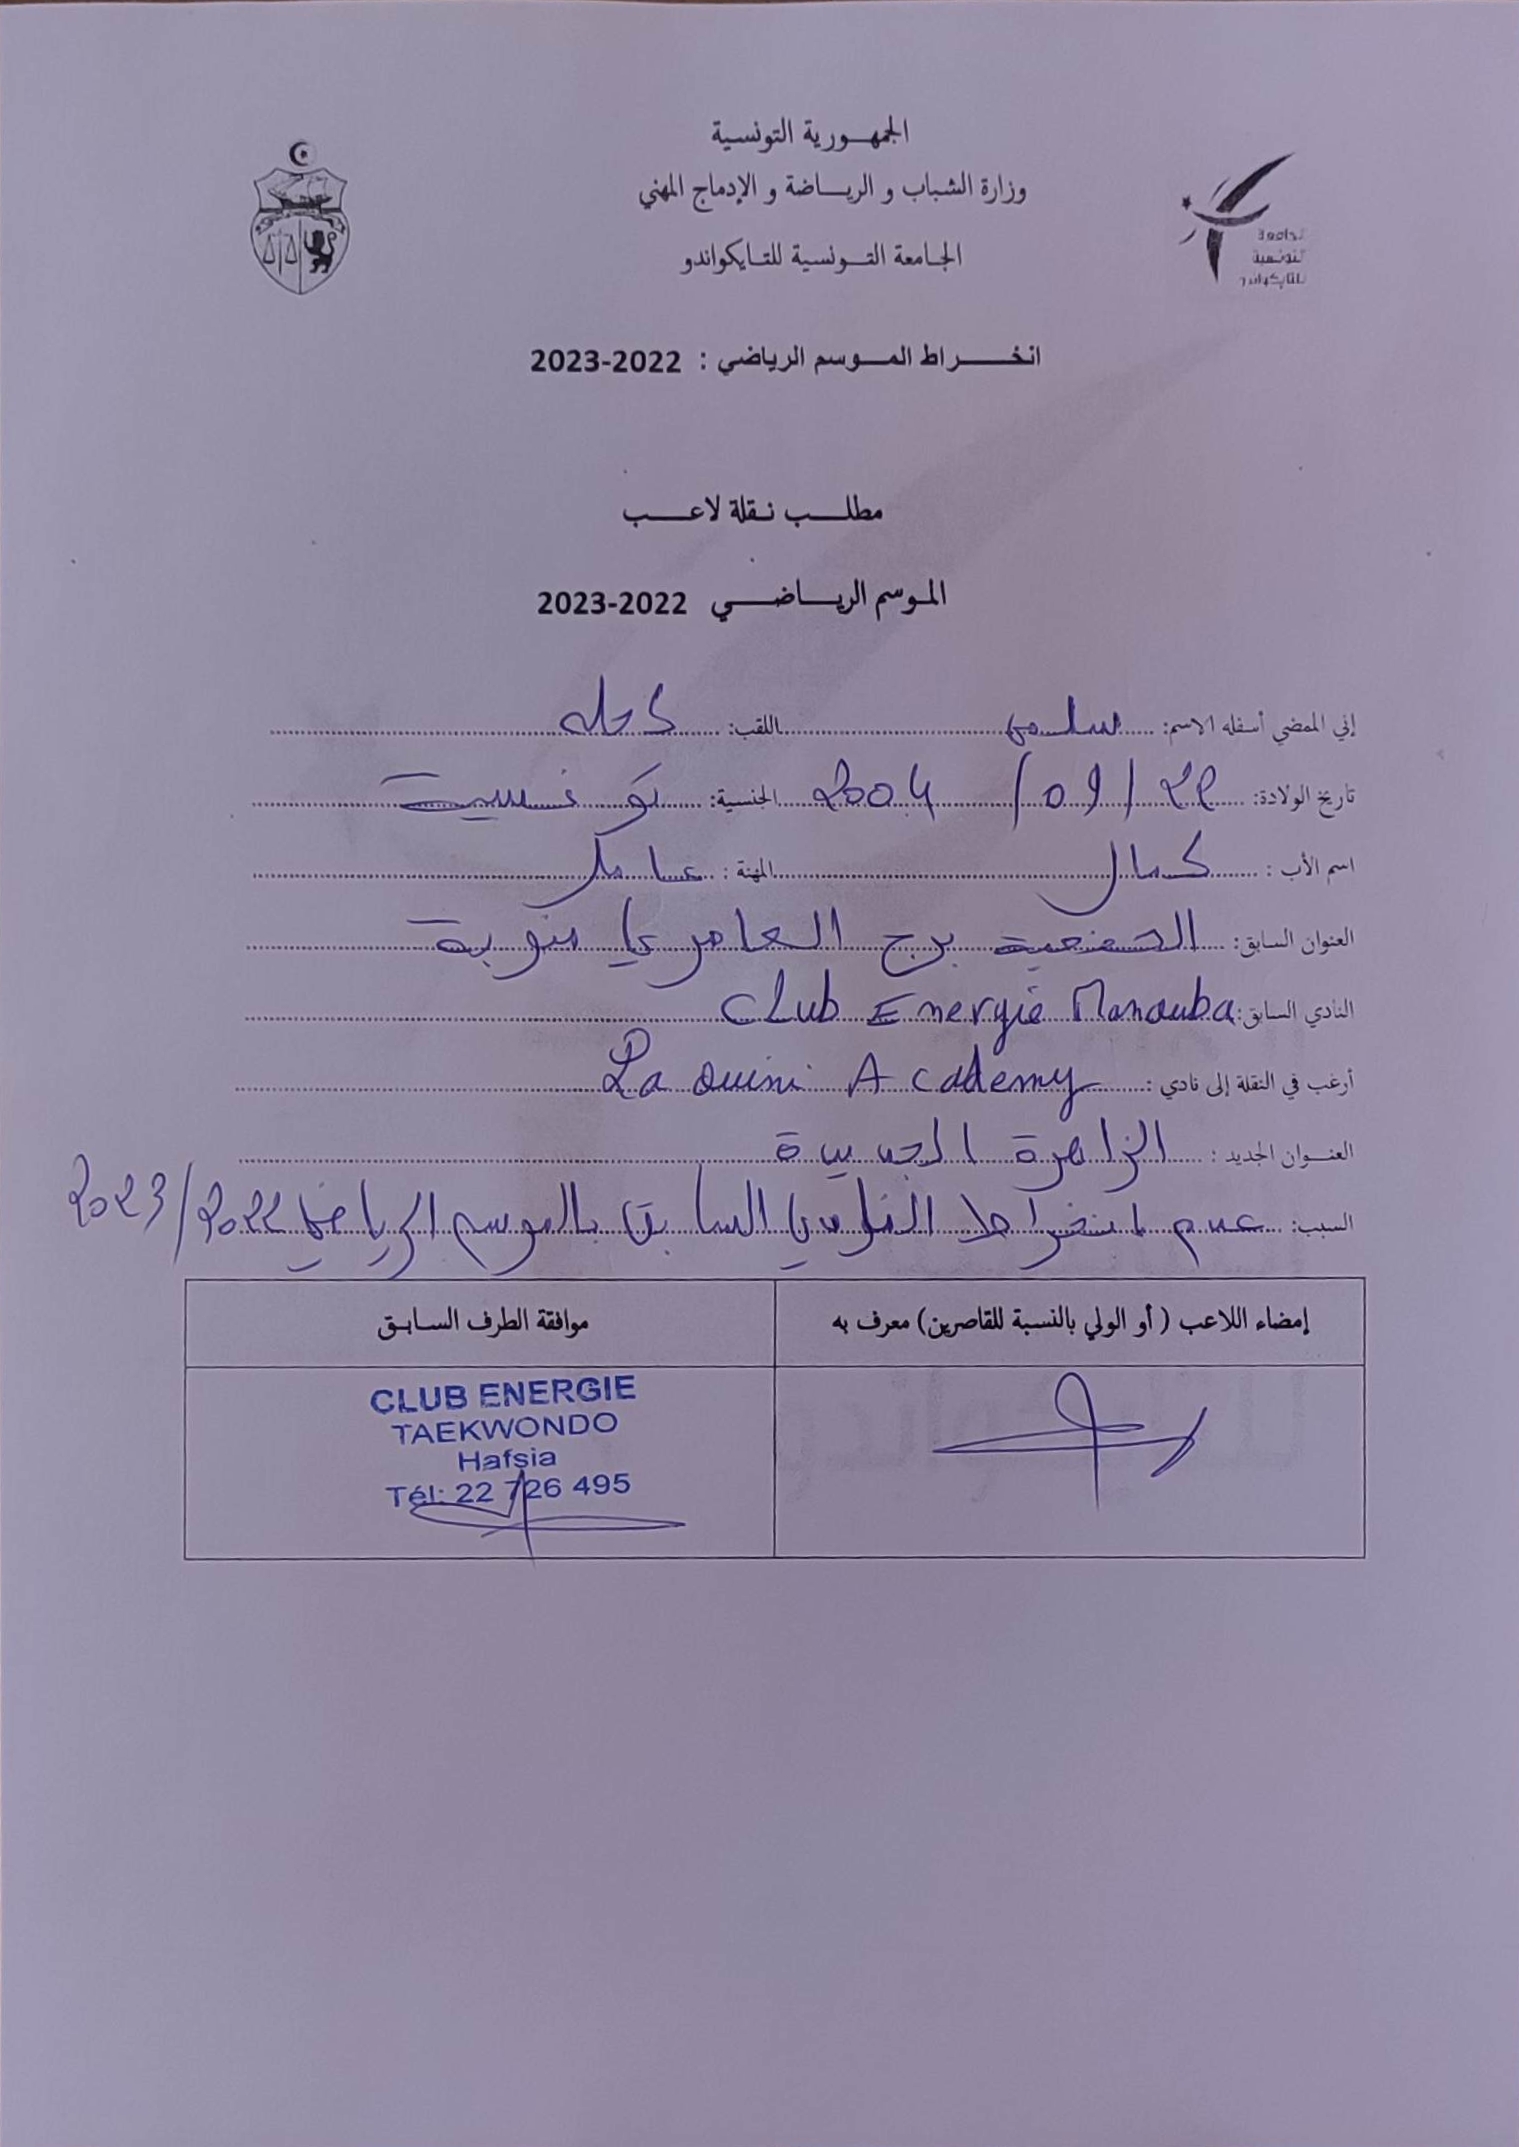 الجمهورية التونسية
وزارة الشباب و الرياضة و الإدماج المهني
الجامعة التونسية للتايكواندو
الجامعة
التونسية
للتايكواندو
انخراط الموسم الرياضي : 2022-2023
مطلب نقلة لاعب
الموسم الرياضي 2022-2023
إني الممضي أسفله الاسم: سلمى اللقب: كحله
تاريخ الولادة: 22 / 09 / 2004 الجنسية: تونسية
اسم الأب : كمال المهنة : عامل
العنوان السابق: برج العامري منوبة
النادي السابق: Club Energie Manouba
أرغب في النقلة إلى نادي : Laouini Academy
العنوان الجديد : الزاهرة الجديدة
السبب: عدم انخراط النادي السابق بالموسم الرياضي 2022/2023
إمضاء اللاعب ( أو الولي بالنسبة للقاصرين) معرف به
موافقة الطرف السابق
CLUB ENERGIE
TAEKWONDO
Hafsia
Tél: 22 726 495